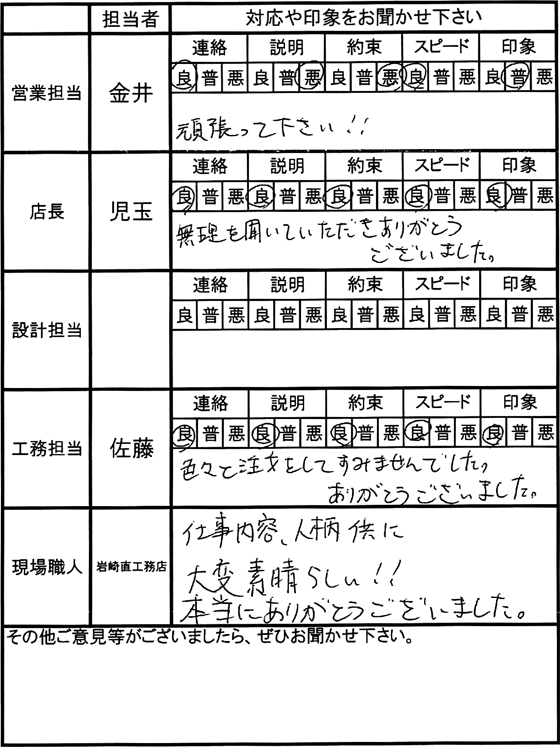 担当者 対応や印象をお聞かせ下さい
営業担当 金井
連絡 説明 約束 スピード 印象
良 普 悪 良 普 悪 良 普 悪 良 普 悪 良 普 悪
頑張って下さい!!
店長 児玉
連絡 説明 約束 スピード 印象
良 普 悪 良 普 悪 良 普 悪 良 普 悪 良 普 悪
無理を聞いていただきありがとう
ございました。
設計担当
連絡 説明 約束 スピード 印象
良 普 悪 良 普 悪 良 普 悪 良 普 悪 良 普 悪
工務担当 佐藤
連絡 説明 約束 スピード 印象
良 普 悪 良 普 悪 良 普 悪 良 普 悪 良 普 悪
色々と注文をしてすみませんでした。
ありがとうございました。
現場職人 岩崎直工務店
仕事内容、人柄 供に
大変素晴らしい!!
本当にありがとうございました。
その他ご意見等がございましたら、ぜひお聞かせ下さい。